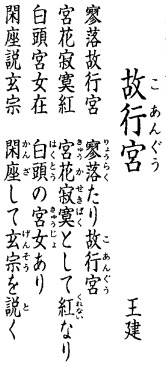 故行宮
こあんぐう
王建
寥落故行宮　寥落たり故行宮
りょうらく　こあんぐう
宮花寂寞紅　宮花寂寞として紅なり
きゅうかせきばく　くれない
白頭宮女在　白頭の宮女あり
はくとう　きゅうじょ
閑座説玄宗　閑座して玄宗を説く
かんざ　げんそう　と